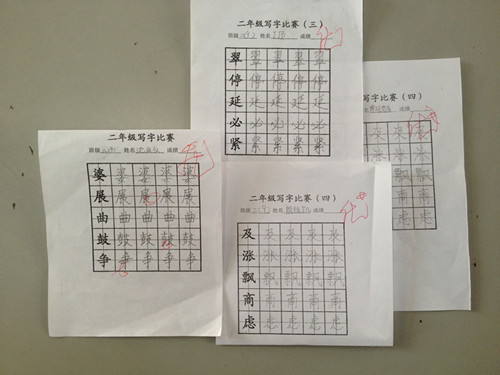 二年级写字比赛（三）
班级 姓名 成绩
翠 翠 翠 翠 翠
停 停 停 停 停
延 延 延 延 延
必 必 必 必 必
紧 紧 紧 紧 紧
写字比赛（四）
姓名 成绩
二年级写字比赛
班级 姓名 成绩
婆 婆 婆 婆 婆
展 展 展 展 展
曲 曲 曲 曲 曲
鼓 鼓 鼓 鼓 鼓
争 争 争 争 争
二年级写字比赛（四）
班级 姓名 成绩
及 及 及 及 及
涨 涨 涨 涨 涨
飘 飘 飘 飘 飘
商 商 商 商 商
虑 虑 虑 虑 虑